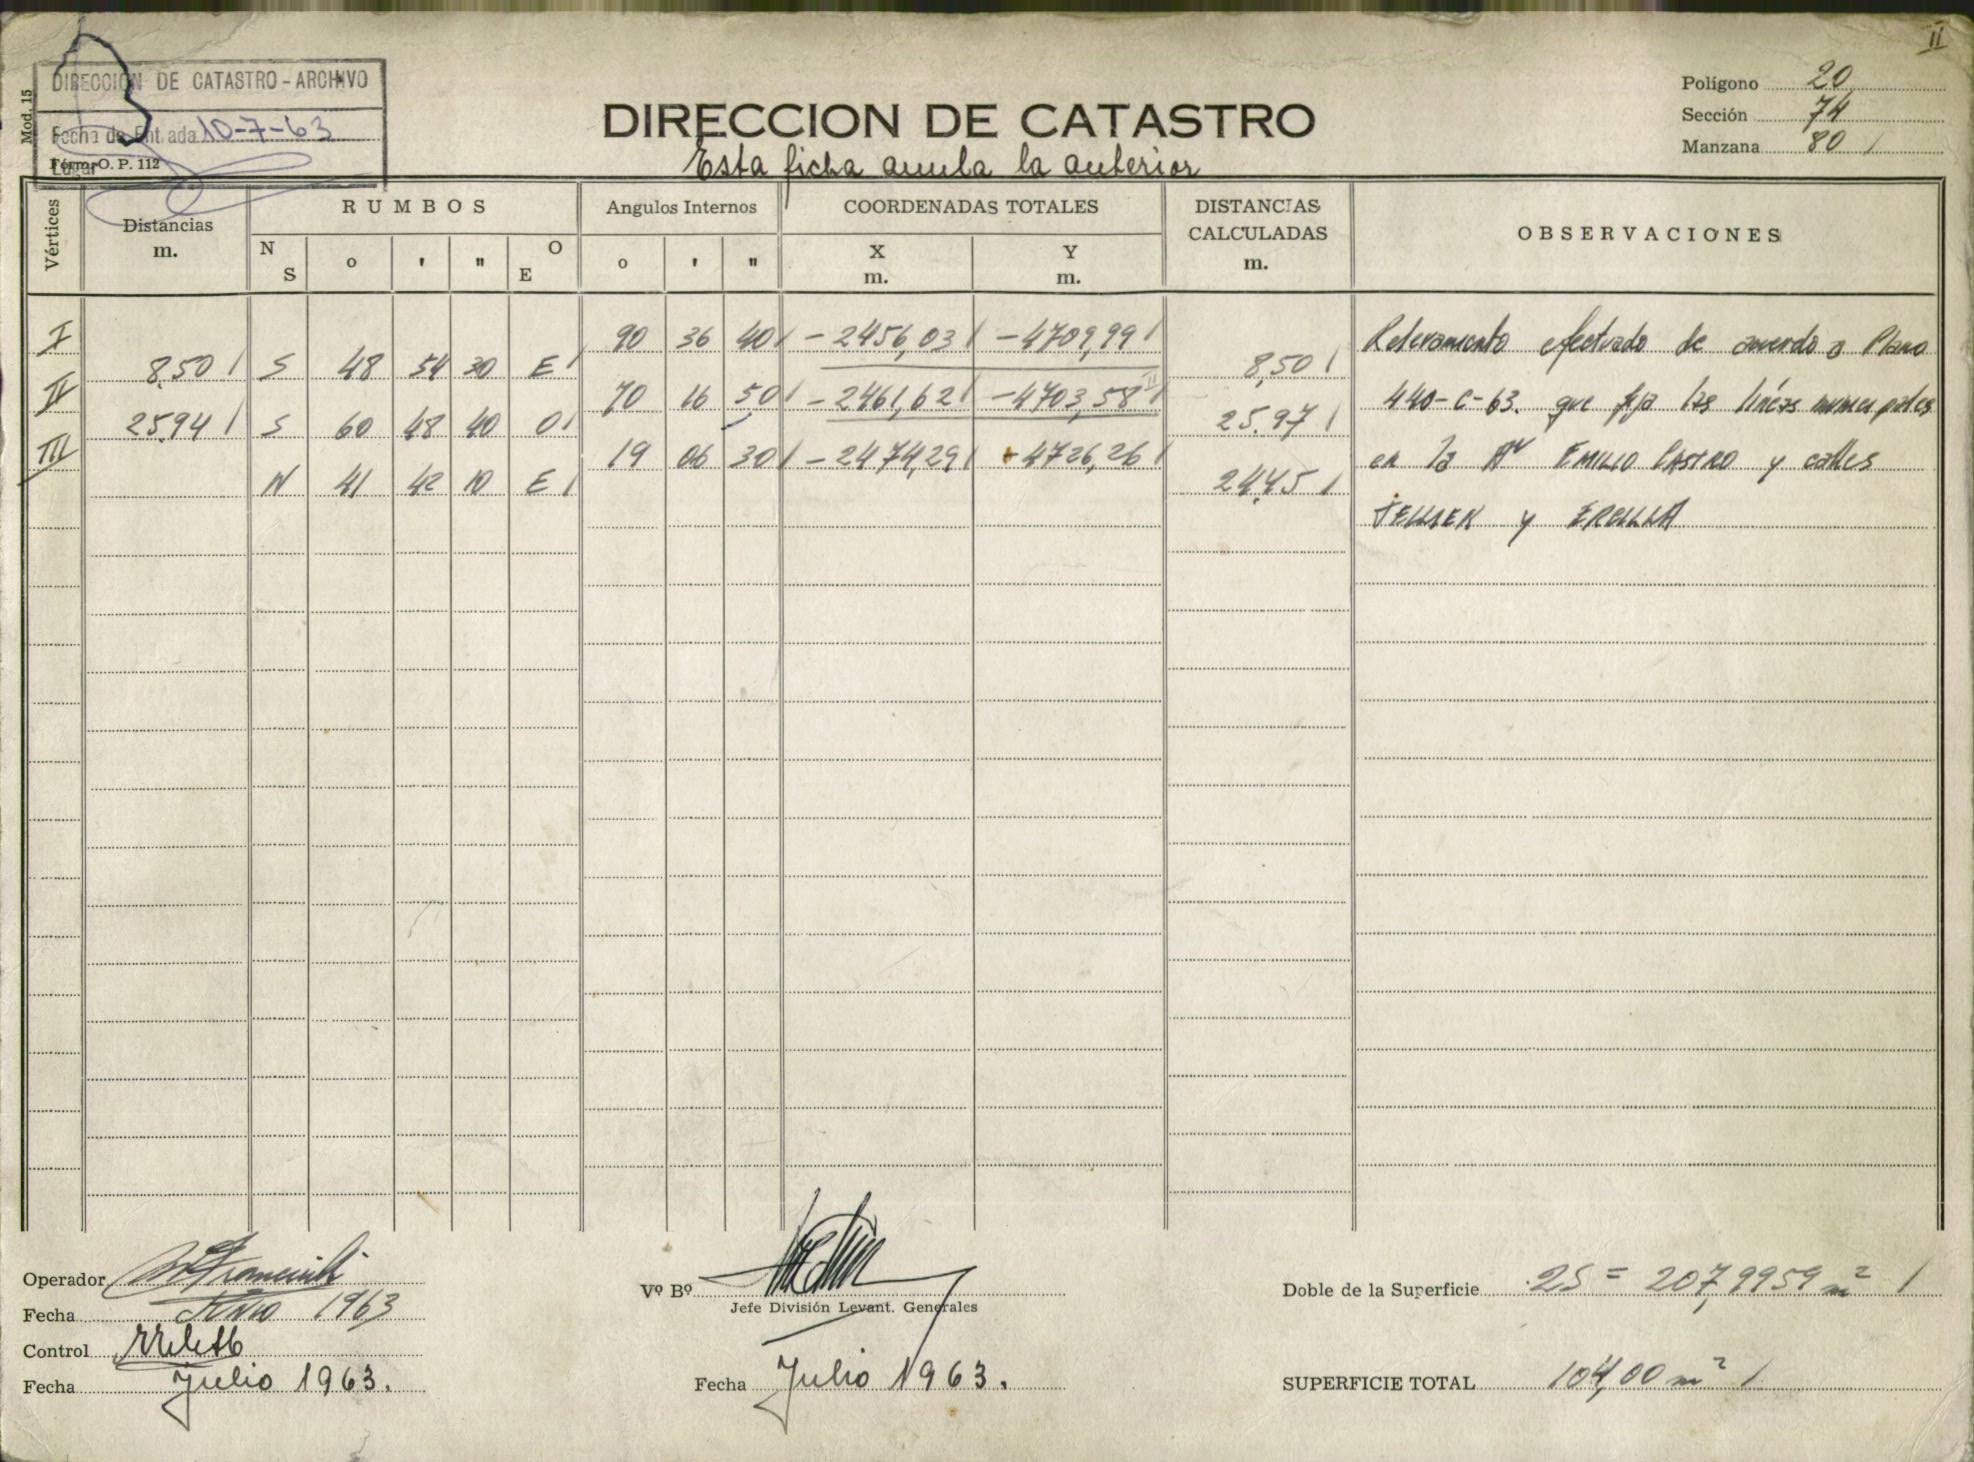 II
Mod. 15
DIRECCION DE CATASTRO - ARCHIVO
Fecha de Entrada 10-7-63
Lugar
Form. O. P. 112
DIRECCION DE CATASTRO
Esta ficha anula la anterior
Polígono 20
Sección 74
Manzana 80
Vértices
Distancias m.
RUMBOS
N S ° ' " O E
Angulos Internos
° ' "
COORDENADAS TOTALES
X m. Y m.
DISTANCIAS CALCULADAS m.
OBSERVACIONES
I 90 36 40 -2456,03 -4709,99
8,50 S 48 54 30 E 8,50
II 70 16 50 -2461,62 -4703,58 II
25,94 S 60 48 40 O 25,97
III 19 06 30 -2474,29 -4726,26
N 41 42 10 E 24,45
Relevamiento efectuado de acuerdo a Plano
440-C-63. que fija las líneas municipales
en la Av EMILIO CASTRO y calles
TELLIER y ERCILLA
Operador
Fecha Junio 1963
Control
Fecha Julio 1963.
Vº Bº
Jefe División Levant. Generales
Fecha Julio 1963.
Doble de la Superficie 2S = 207,9959 m²
SUPERFICIE TOTAL 104,00 m²